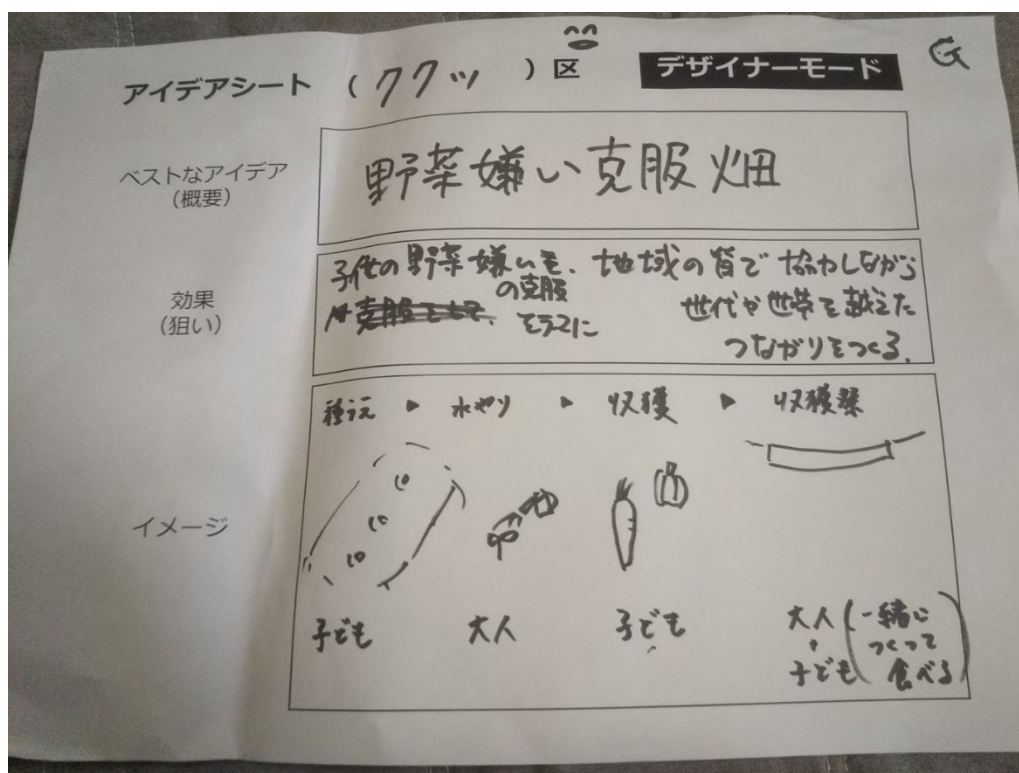 アイデアシート (ククッ)区 デザイナーモード G
ベストなアイデア
(概要)
野菜嫌い克服畑
効果
(狙い)
子供の野菜嫌いを、地域の皆で協力しながら
の克服
をテコに
世代や世帯を越えた
つながりをつくる。
イメージ
種うえ ▶ 水やり ▶ 収穫 ▶ 収穫祭
子ども 大人 子ども 大人 + 子ども (一緒に
つくって
食べる)